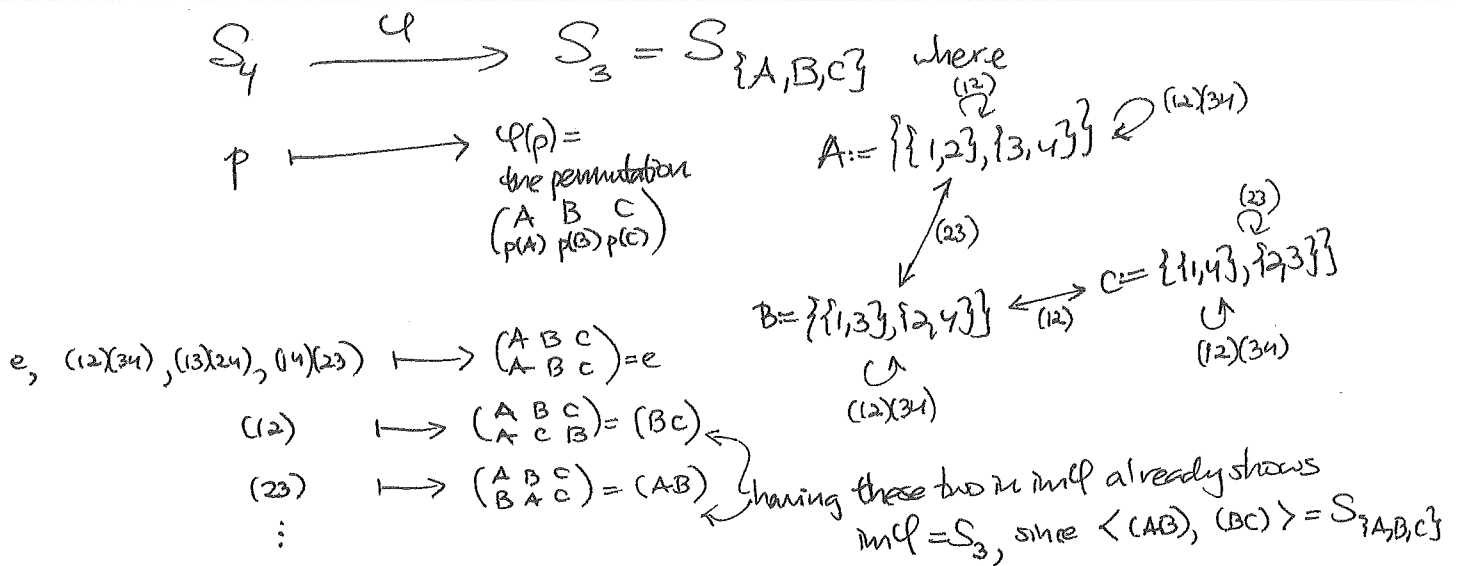 S₄ —φ→ S₃ = S_{A,B,C} where
p ↦ φ(p)=
the permutation
(A B C
p(A) p(B) p(C))
(12)
A:= {{1,2},{3,4}} (12)(34)
(23)
(23)
B:= {{1,3},{2,4}} ↔ C:= {{1,4},{2,3}}
(12)
(12)(34)
(12)(34)
e, (12)(34), (13)(24), (14)(23) ↦ (A B C
A B C)=e
(12) ↦ (A B C
A C B)= (BC)
(23) ↦ (A B C
B A C)= (AB)
⋮
having these two in imφ already shows
imφ=S₃, since <(AB), (BC)> = S_{A,B,C}